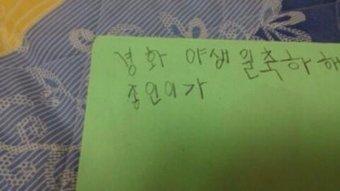 경화 야생일축하해
종인이가